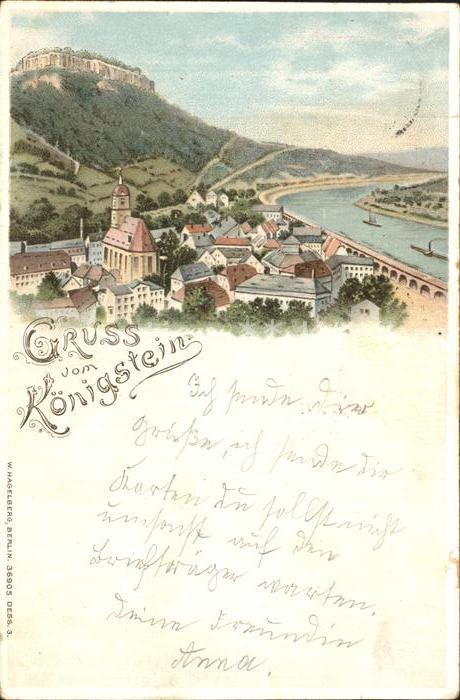 Gruss
vom
Königstein
Ich sende dir
Grüße, ich sende dir
Karten du sollst nicht
umsonst auf den
Briefträger warten.
Deine Freundin
Anna.
W. HAGELBERG, BERLIN. 36905 DESS. 3.